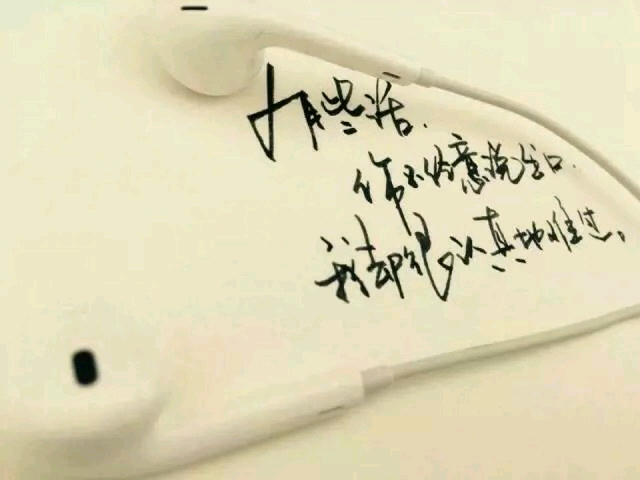 有些话.
你不经意说出口.
我却很认真地难过。